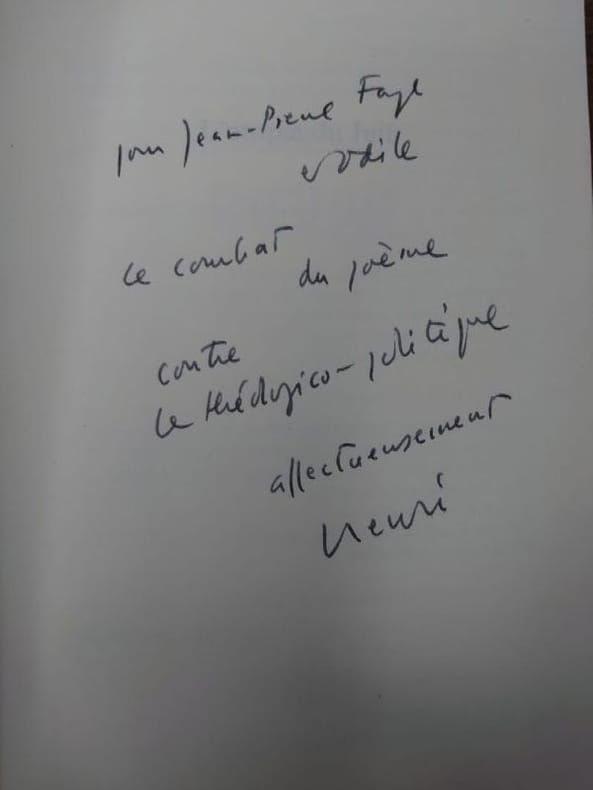 pour Jean-Pierre Faye
et Odile
le combat
du poème
contre
le théologico-politique
affectueusement
Henri